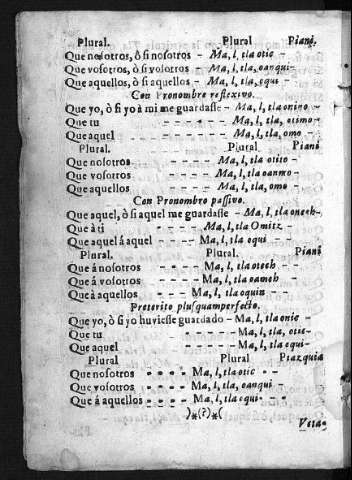 Plural. Plural Piani.
Que nosotros, ò si nosotros - Ma, l, tla otic - -
Que vosotros, ò si vosotros - Ma, l, tla, oanqui- -
Que aquellos, ò si aquellos - Ma, l, tla, equi - -
Con Pronombre reflexivo.
Que yo, ò si yo à mi me guardasse - Ma, l, tla onino - -
Que tu - - - - Ma, l, tla, otimo - -
Que aquel - - - - Ma, l, tla, omo - -
Plural. Plural. Piani
Que nosotros - - - - Ma, l, tla otito - -
Que vosotros - - - - Ma, l, tla oanmo - -
Que aquellos - - - - Ma, l, tla, omo - -
Con Pronombro passivo.
Que aquel, ò si aquel me guardasse - Ma, l, tla onech-
Que à ti - - - - Ma, l, tla Omitz - -
Que aquel á aquel - - - - Ma, l, tla equi - -
Plural. Plural. Piani
Que á nosotros - - - Ma, l, tla otech - -
Que á vosotros - - - Ma, l, tla oamech - -
Que à aquellos - - - - Ma, l, tla equin - -
Preterito plusquamperfecto.
Que yo, ò si yo huviesse guardado - Ma, l, tla onic - -
Que tu - - - - Ma, l, tla, otic- -
Que aquel - - - - Ma, l, tla equi- -
Plural Plural Piazquia
Que nosotros - - - - Ma, l, tla otic - -
Que vosotros - - - - Ma, l, tla, oanqui - -
Que á aquellos - - - - Ma, l, tla equi- - -
)*(?)*(